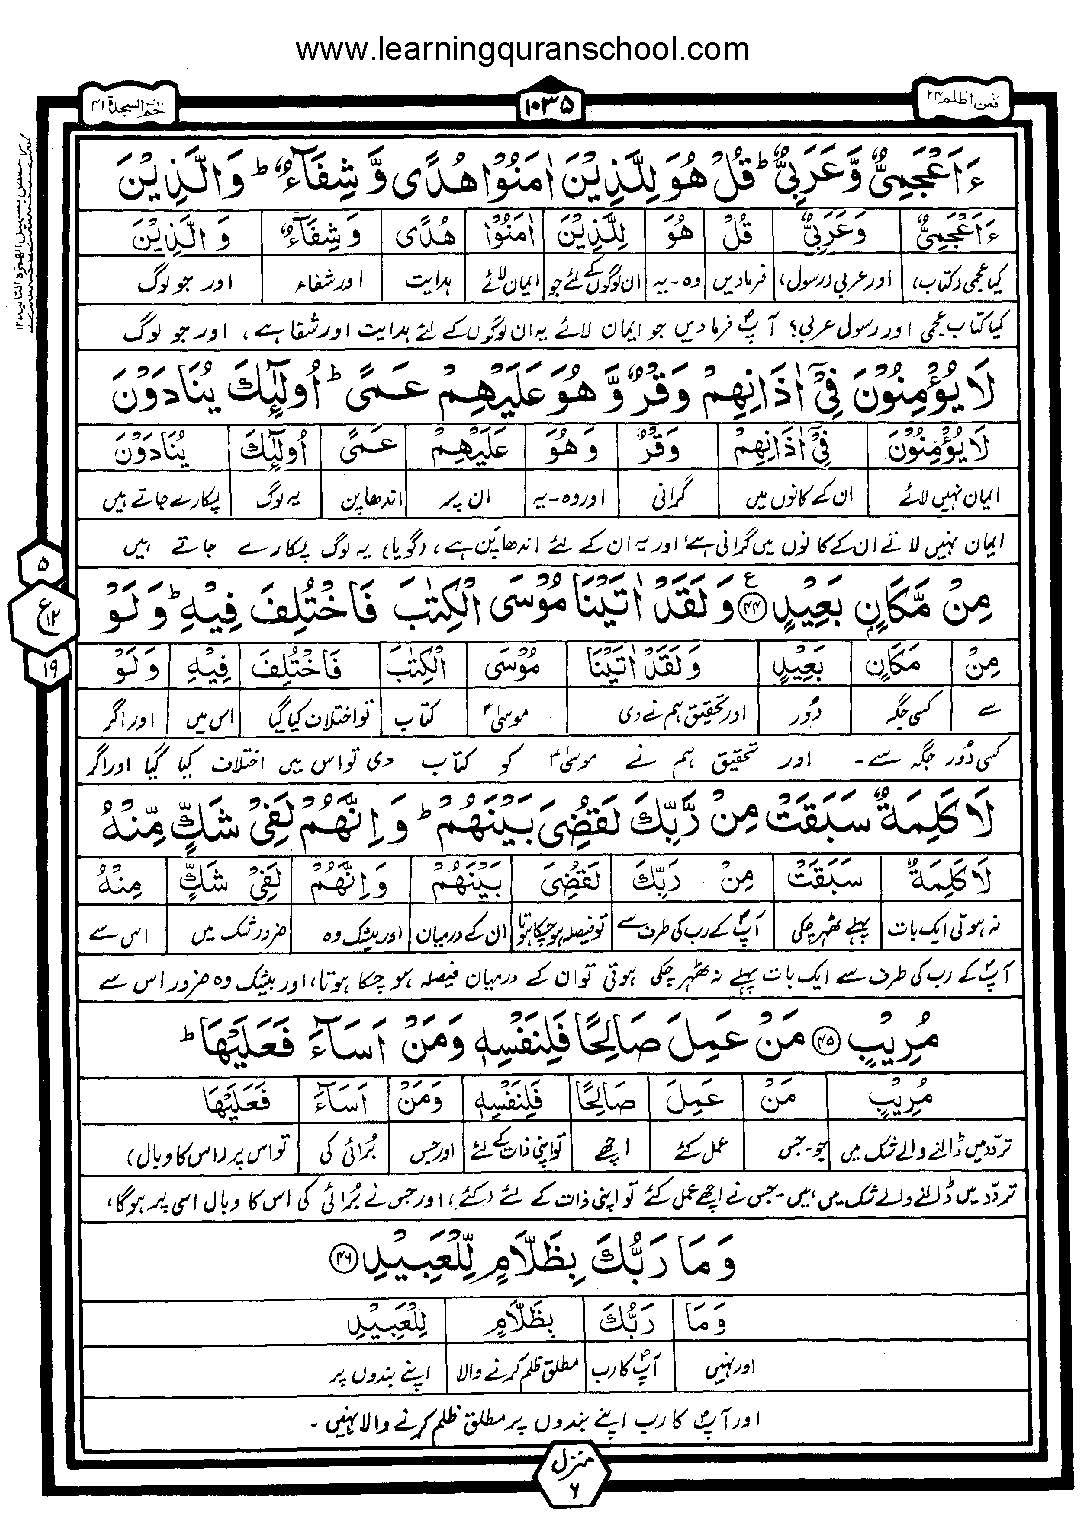 www.learningquranschool.com
حٰمٓ السجدة ٤١
١٠٣۵
فمن اظلم ٢٤
ءَاَعْجَمِیٌّ وَّعَرَبِیٌّ ؕ قُلْ هُوَ لِلَّذِیْنَ اٰمَنُوْا هُدًی وَّشِفَآءٌ ؕ وَالَّذِیْنَ
ءَاَعْجَمِیٌّ وَعَرَبِیٌّ قُلْ هُوَ لِلَّذِیْنَ اٰمَنُوْا هُدًی وَشِفَآءٌ وَالَّذِیْنَ
کیا عجمی (کتاب) اور عربی (رسول) فرمادیں وہ۔یہ ان لوگوں کے لئے جو ایمان لائے ہدایت اور شفاء اور جو لوگ
کیا کتاب عجمی اور رسول عربی؟ آپؐ فرمادیں جو ایمان لائے یہ ان لوگوں کے لئے ہدایت اور شفا ہے، اور جو لوگ
لَا یُؤْمِنُوْنَ فِیْۤ اٰذَانِهِمْ وَقْرٌ وَّهُوَ عَلَیْهِمْ عَمًی ؕ اُولٰٓئِكَ یُنَادَوْنَ
لَا یُؤْمِنُوْنَ فِیْۤ اٰذَانِهِمْ وَقْرٌ وَهُوَ عَلَیْهِمْ عَمًی اُولٰٓئِكَ یُنَادَوْنَ
ایمان نہیں لائے ان کے کانوں میں گرانی اور وہ۔یہ ان پر اندھاپن یہ لوگ پکارے جاتے ہیں
ایمان نہیں لائے ان کے کانوں میں گرانی ہے اور یہ ان کے لئے اندھاپن ہے، (گویا) یہ لوگ پکارے جاتے ہیں
۵
ع
١٢
١٩
مِنْ مَّكَانٍ بَعِیْدٍ ﴿٤٤﴾ ع وَلَقَدْ اٰتَیْنَا مُوْسَی الْكِتٰبَ فَاخْتُلِفَ فِیْهِ ؕ وَلَوْ
مِنْ مَكَانٍ بَعِیْدٍ وَلَقَدْ اٰتَیْنَا مُوْسَی الْكِتٰبَ فَاخْتُلِفَ فِیْهِ وَلَوْ
سے کسی جگہ دُور اور تحقیق ہم نے دی موسیٰؑ کتاب تو اختلاف کیا گیا اس میں اور اگر
کسی دُور جگہ سے۔ اور تحقیق ہم نے موسیٰؑ کو کتاب دی تو اس میں اختلاف کیا گیا اور اگر
لَا كَلِمَةٌ سَبَقَتْ مِنْ رَّبِّكَ لَقُضِیَ بَیْنَهُمْ ؕ وَاِنَّهُمْ لَفِیْ شَكٍّ مِّنْهُ
لَا كَلِمَةٌ سَبَقَتْ مِنْ رَبِّكَ لَقُضِیَ بَیْنَهُمْ وَاِنَّهُمْ لَفِیْ شَكٍّ مِنْهُ
نہ ہوتی ایک بات پہلے ٹھہر چکی آپؐ کے رب کی طرف سے تو فیصلہ ہو چکا ہوتا ان کے درمیان اور بیشک وہ ضرور شک میں اس سے
آپؐ کے رب کی طرف سے ایک بات پہلے نہ ٹھہر چکی ہوتی تو ان کے درمیان فیصلہ ہو چکا ہوتا، اور بیشک وہ ضرور اس سے
مُرِیْبٍ ﴿٤۵﴾ مَنْ عَمِلَ صَالِحًا فَلِنَفْسِهٖ وَمَنْ اَسَآءَ فَعَلَیْهَا ؕ
مُرِیْبٍ مَنْ عَمِلَ صَالِحًا فَلِنَفْسِهٖ وَمَنْ اَسَآءَ فَعَلَیْهَا
تردّد میں ڈالنے والے شک میں جو۔جس عمل کئے اچھے تو اپنی ذات کے لئے اور جس بُرائی کی تو اس پر (اس کا وبال)
تردّد میں ڈالنے والے شک میں ہیں۔ جس نے اچھے عمل کئے تو اپنی ذات کے لئے (کئے)، اور جس نے بُرائی کی اس کا وبال اسی پر ہوگا،
وَمَا رَبُّكَ بِظَلَّامٍ لِّلْعَبِیْدِ ﴿٤٦﴾
وَمَا رَبُّكَ بِظَلَّامٍ لِلْعَبِیْدِ
اور نہیں آپؐ کا رب مطلق ظلم کرنے والا اپنے بندوں پر
اور آپؐ کا رب اپنے بندوں پر مطلق ظلم کرنے والا نہیں۔
منزل
٦